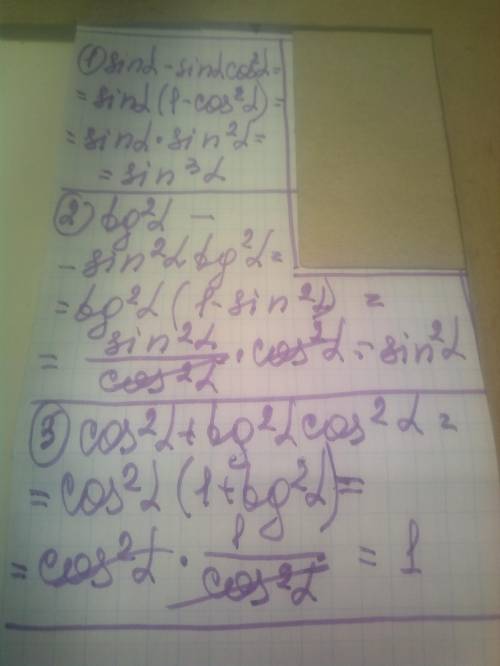 ① sinα - sinαcos²α =
= sinα (1 - cos²α) =
= sinα · sin²α =
= sin³α
② tg²α -
- sin²α tg²α =
= tg²α (1 - sin²α) =
= sin²α / cos²α · cos²α = sin²α
③ cos²α + tg²α cos²α =
= cos²α (1 + tg²α) =
= cos²α · 1 / cos²α = 1